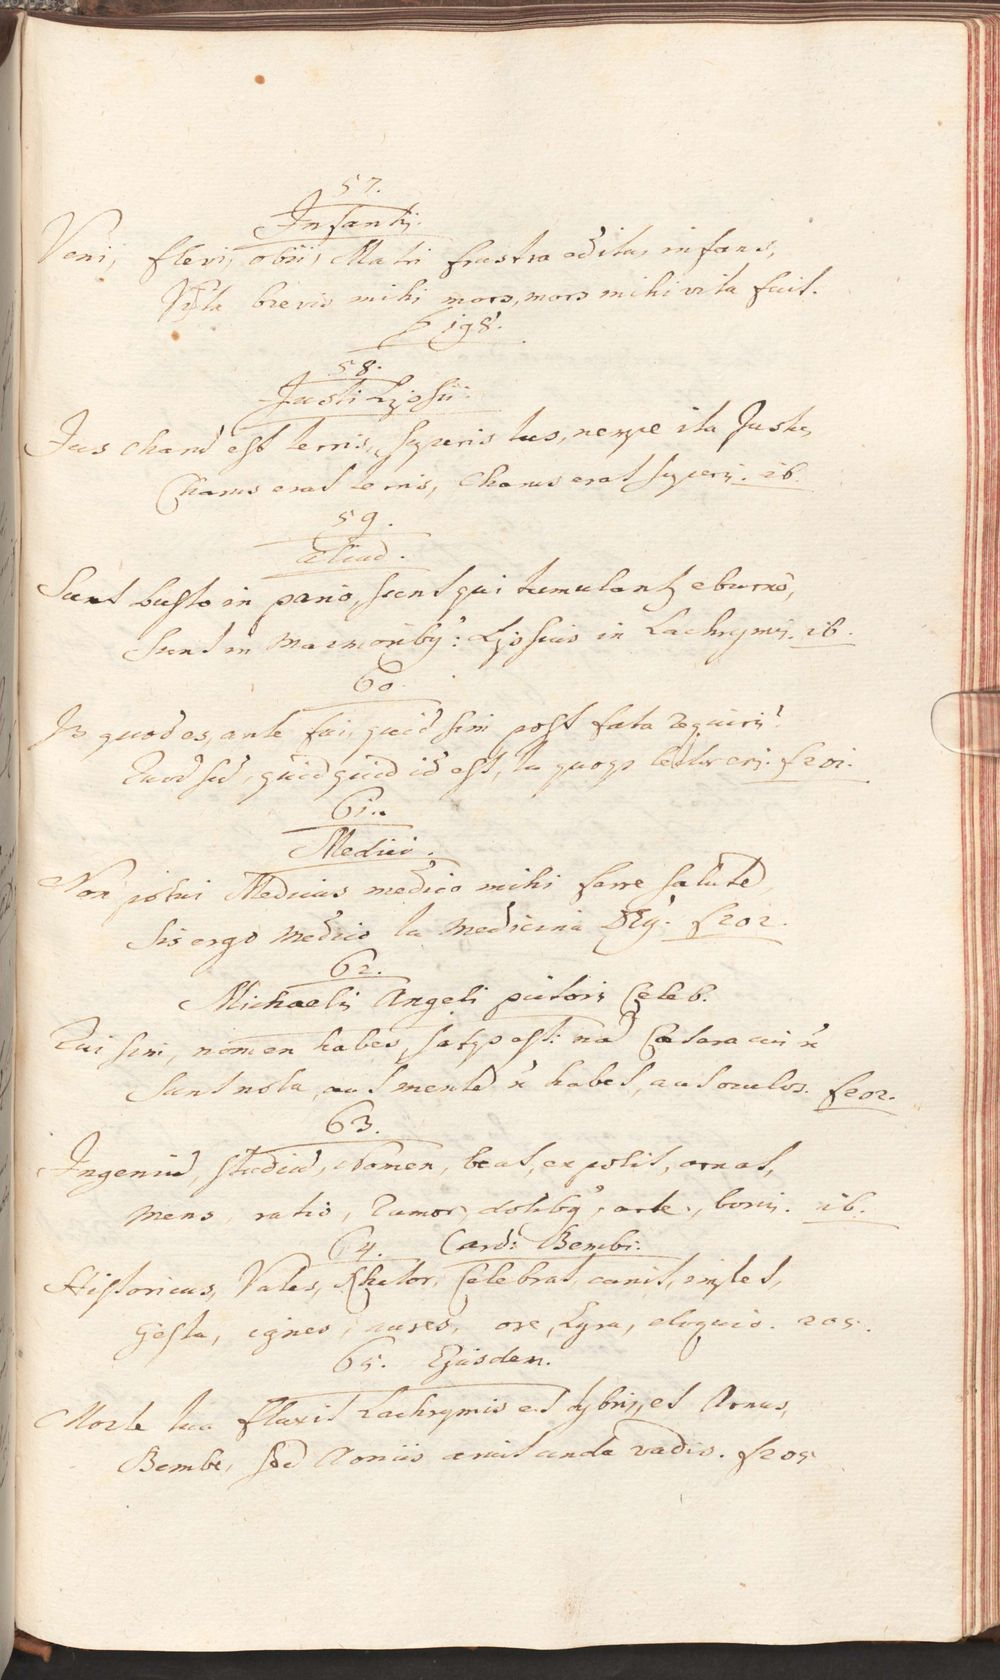 57.
Infantis.
Veni, flevi, obii, Matri frustra editus infans,
Vita brevis mihi mors, mors mihi vita fuit.
f 198.
58.
Justi Lipsii.
Jus charū est terris, superis tus, nempe ita Justus
Charus erat terris, charus erat superis. ib.
59.
aliud.
Sunt busto in pario, sunt qui tumulantur eburno,
Sunt in marmoribus: Lipsius in Lachrymis. ib.
60.
Is quod es, ante fui, quid sim post fata requiris?
Quod sū, quidquid id est, tu quoqs lector eris. f 201.
61.
Medici.
Non potui Medicus medico mihi ferre salutē,
Sis ergo medico tu medicina Deus. f 202.
62.
Michaelis Angeli pictoris Celeb.
Qui sim, nomen habes, sat est: nā Cætera cui ñ
Sunt nota, aut mentē ñ habet, aut oculos. f 202.
63.
Ingeniū, studiū, Nomen, beat, expolit, ornat,
Mens, ratio, rumor, dotibus, arte, bonis. ib.
64. Card: Bembi.
Historicus, Vates, Rhetor, Celebrat, canit, implet,
Gesta, ignes, aures, ore, Lyra, eloquio. 205.
65. Ejusdem.
Morte tua fluxit Lachrymis et Tybris, et Arnus,
Bembe, sed Aoniis aruit unda vadis. f 205